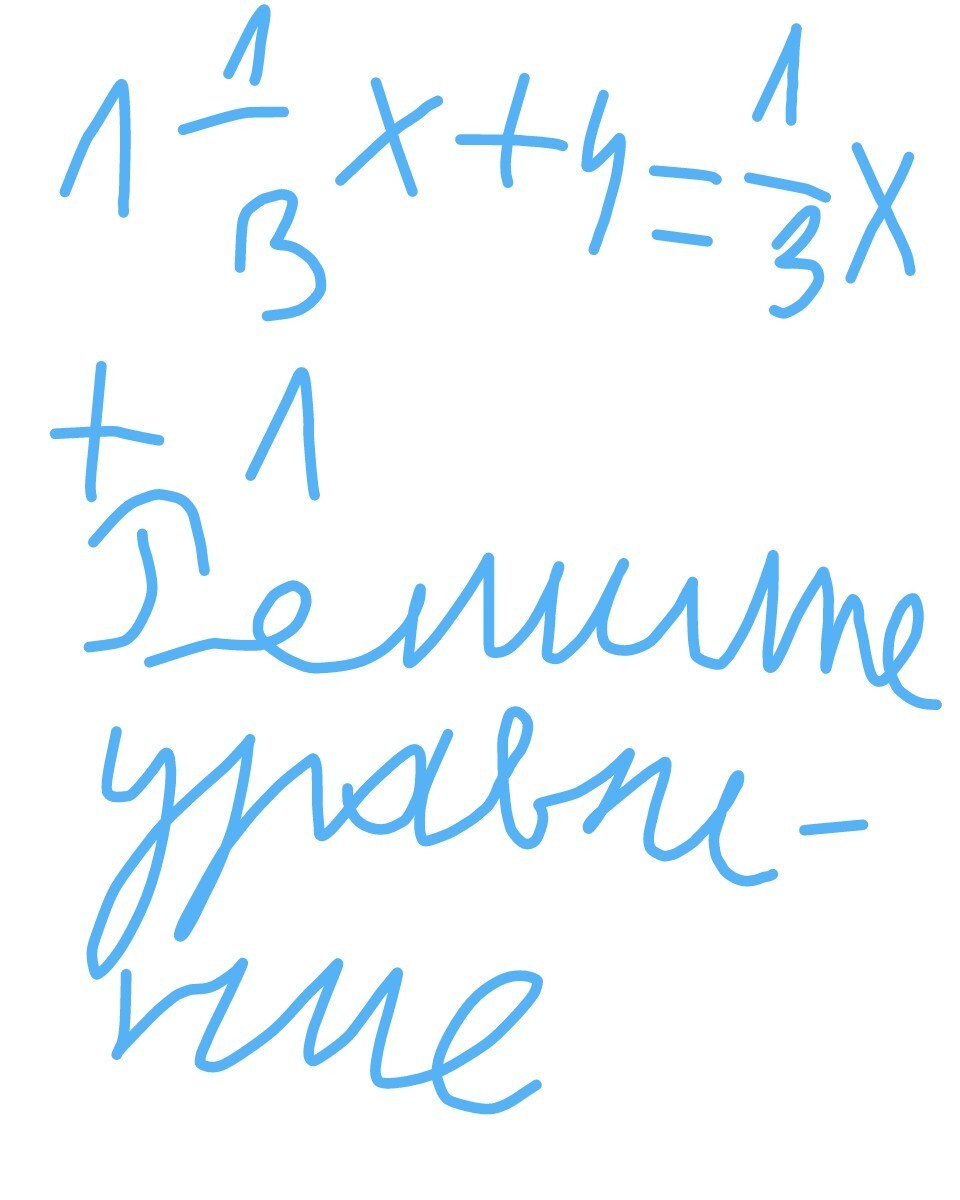 1 1/3 x + 4 = 1/3 x
+ 1
Решите
уравне-
ние